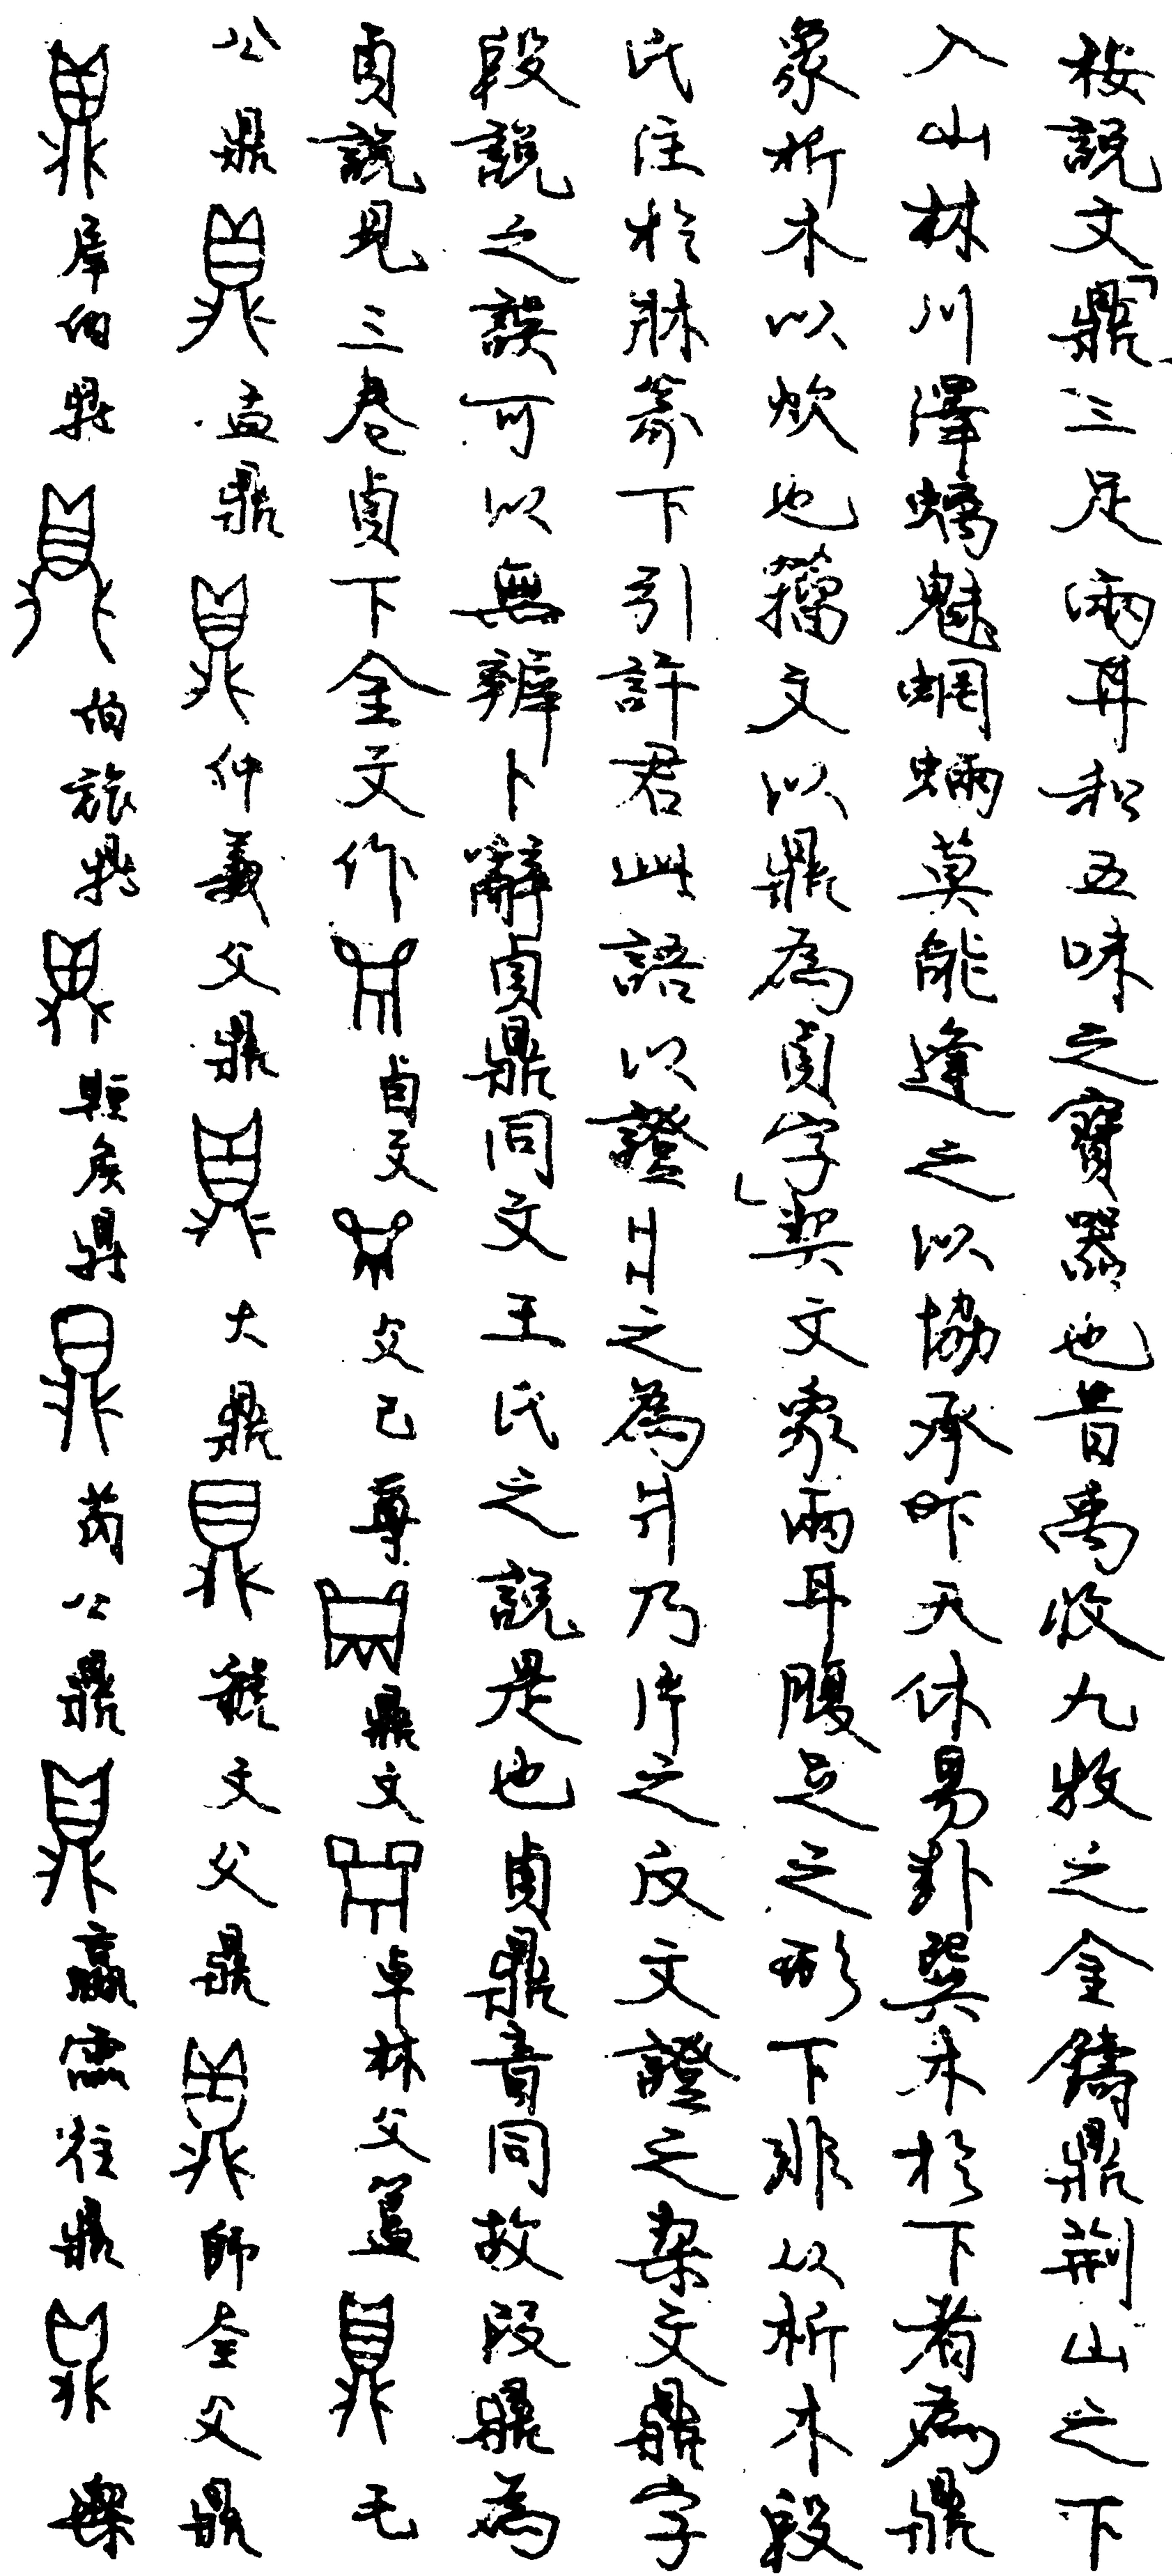 按說文「鼎三足兩耳和五味之寶器也昔禹收九牧之金鑄鼎荊山之下
入山林川澤螭魅蝄蜽莫能逢之以協承昨天休易卦巽木於下者為鼎
象析木以炊也籀文以鼎為貞字」契文象兩耳腹足之形下非从析木段
氏注於牀篆下引許君此語以證之為爿乃片之反文證之栔文鼎字
段說之誤可以無辨卜辭貞鼎同文王氏之說是也貞鼎音同故叚鼎為
貞說見三卷貞下金文作貞文父己尊鼎文卓林父簋毛
公鼎盂鼎仲義父鼎大鼎文父鼎師全父鼎
犀伯鼎伯旅鼎矦鼎芮公鼎鼎